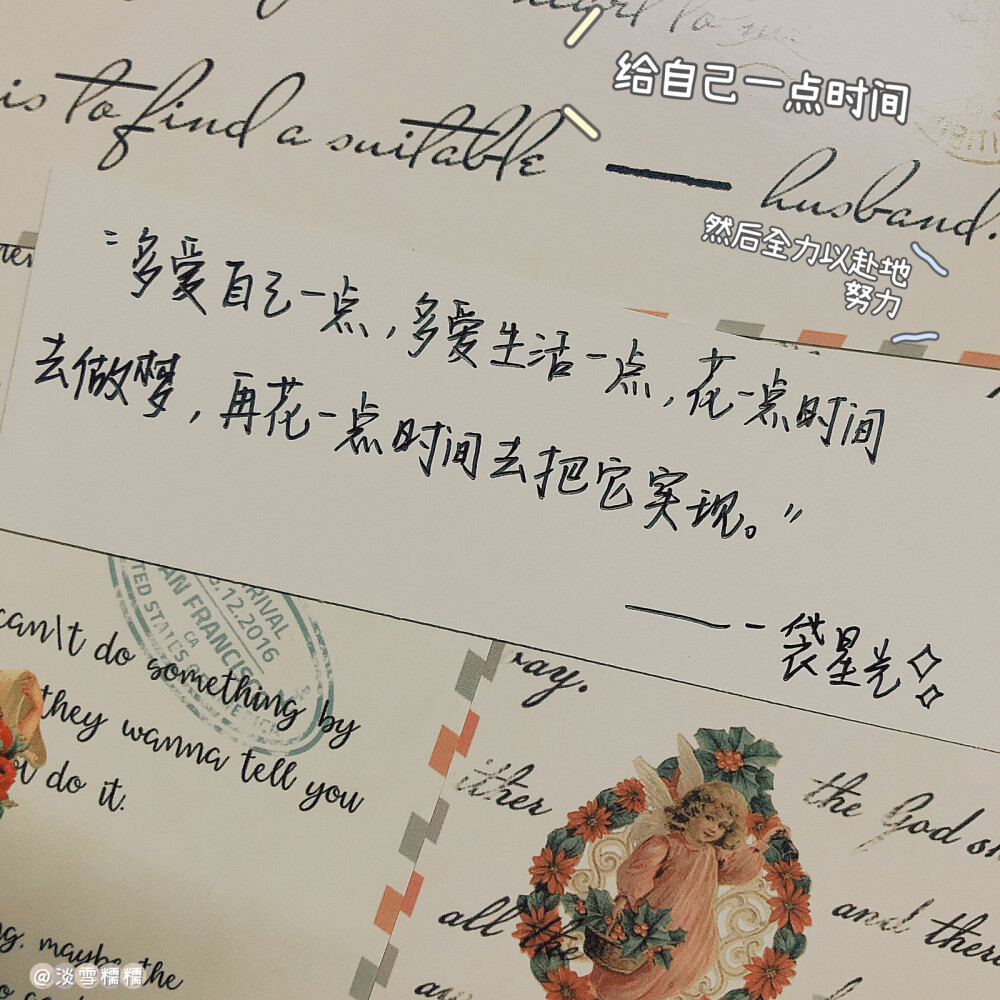 给自己一点时间
is to find a suitable — husband.
然后全力以赴地
努力
"多爱自己一点,多爱生活一点,花一点时间
去做梦,再花一点时间去把它实现。"
——袋星光
RIVAL
.12.2016
AN FRANCISCO
CA
TED STATES OF
can\t do something by
they wanna tell you
do it.
ray.
ither the God
all the and there
maybe the
@淡雪糯糯